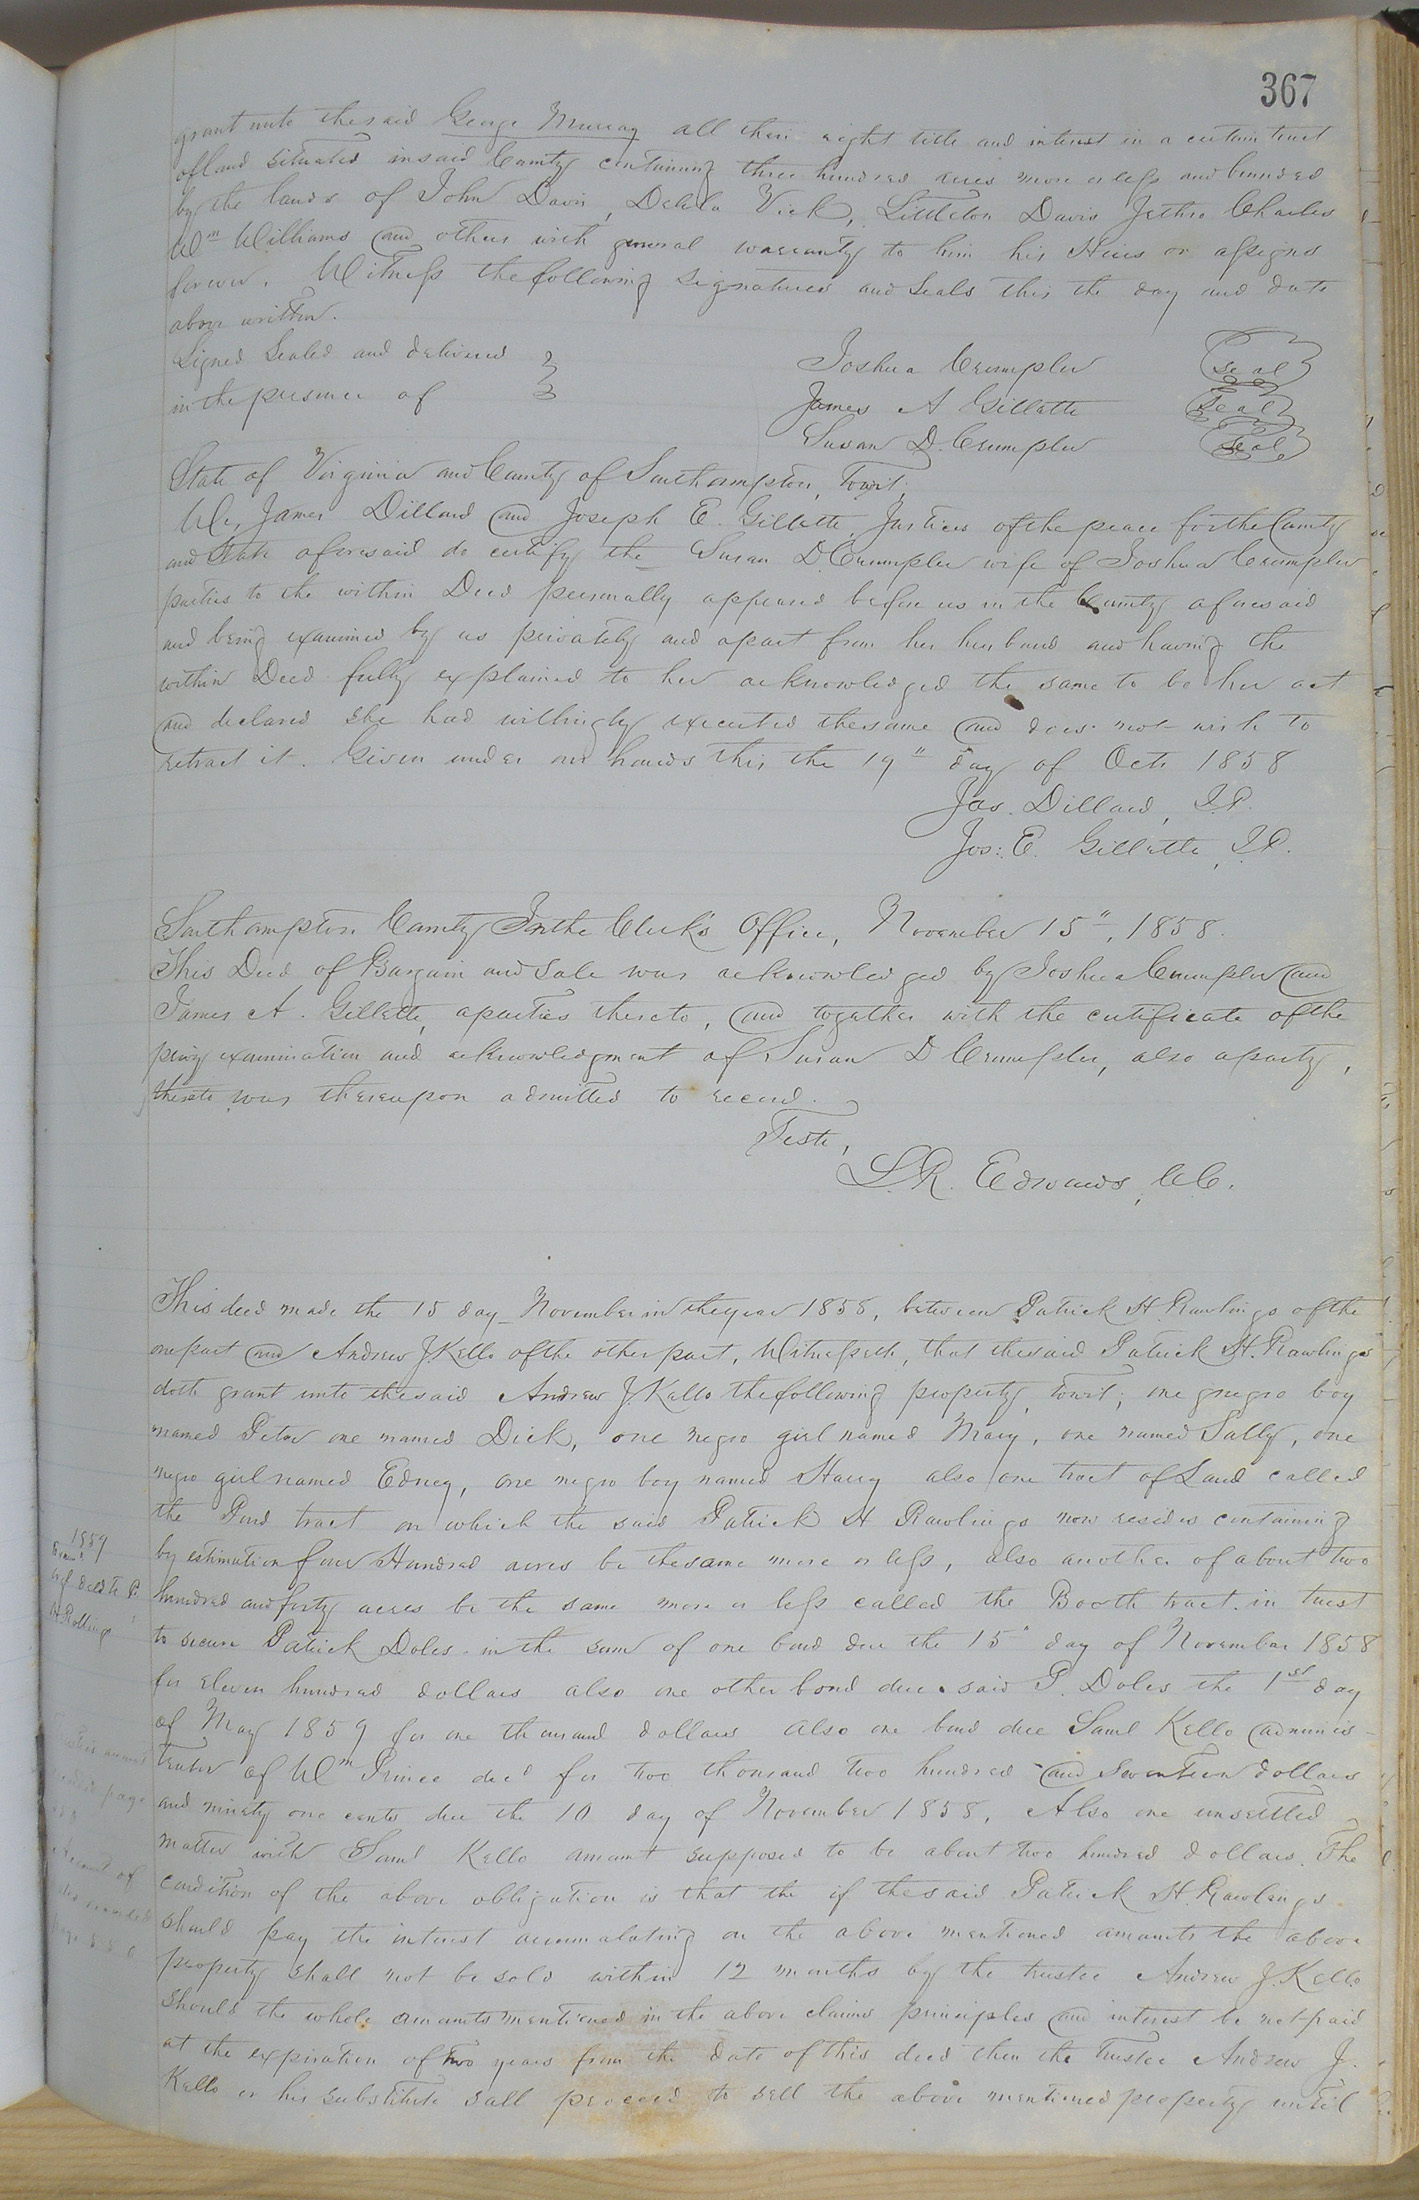 367
grant unto the said George Murray all their right title and interest in a certain tract
of land situated in said County containing three hundred acres more or less and bounded
by the lands of John Davis, Delila Vick, Littleton Davis Jethro Charles
Wm Williams and others with general warranty to him his Heirs or assigns
forever. Witness the following signatures and seals this the day and date
above written.
Signed Sealed and delivered
in the presence of
Joshua Crumpler seal
James A Gillette seal
Susan D. Crumpler seal
State of Virginia and County of Southampton, Towit;
We, James Dillard and Joseph E. Gillette, Justices of the peace for the County
and State aforesaid do certify the Susan D. Crumpler wife of Joshua Crumpler
parties to the within Deed personally appeared before us in the County aforesaid
and being examined by us privately and apart from her husband and having the
within Deed fully explained to her acknowledged the same to be her act
and declared she had willingly executed the same and does not wish to
retract it. Given under our hands this the 19" day of Octr 1858
Jas. Dillard, J.P.
Jos: E. Gillette, J.P.
Southampton County In the Clerk's Office, November 15", 1858.
This Deed of Bargain and Sale was acknowledged by Joshua Crumpler and
James A. Gillette, aparties thereto, and together with the certificate of the
privy examination and acknowledgment of Susan D Crumpler, also a party,
thereto was thereupon admitted to record.
Teste,
L.R. Edwards, C.C.
This deed made the 15 day November in the year 1858, between Patrick H. Rawlings of the
one part and Andrew J. Kello of the other part, Witnesseth, that the said Patrick H. Rawlings
doth grant unto the said Andrew J. Kello the following property, towit; one negro boy
named Peter one named Dick, one negro girl named Mary, one named Sally, one
negro girl named Edney, one negro boy named Harry also one tract of Land called
the Pond tract on which the said Patrick H Rawlings now resides containing
by estimation four Hundred acres be the same more or less, also another of about two
hundred and forty acres be the same more or less called the Booth tract in trust
to secure Patrick Doles in the sum of one bond due the 15" day of November 1858
for eleven hundred dollars also one other bond due said P. Doles the 1st day
of May 1859 for one thousand dollars also one bond due Saml Kello adminis-
trator of Wm Prince decd for two thousand two hundred and Seventeen dollars
and ninety one cents due the 10 day of November 1858, Also one unsettled
matter with Saml Kello amount supposed to be about two hundred dollars. The
condition of the above obligation is that the if the said Patrick H. Rawlings
should pay the interest accumulating on the above mentioned amounts the above
property shall not be sold within 12 months by the trustee Andrew J. Kello
should the whole amounts mentioned in the above claims principles and interest be not paid
at the expiration of two years from the date of this deed then the Trustee Andrew J.
Kello or his substitute sall proceed to sell the above mentioned property until
1859
deld to P.
H. Rollings
page
account of